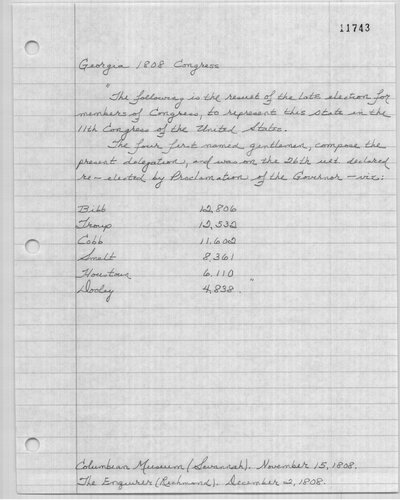 11743
Georgia 1808 Congress
"The following is the result of the late election for
members of Congress, to represent this State in the
11th Congress of the United States.
The four first named gentlemen, compose the
present delegation, and was on the 26th ult. declared
re-elected by Proclamation of the Governor - viz:
Bibb 12,806
Troup 12,532
Cobb 11,602
Smelt 8,361
Houstoun 6,110
Dooley 4,838 "
Columbian Museum (Savannah). November 15, 1808.
The Enquirer (Richmond). December 2, 1808.